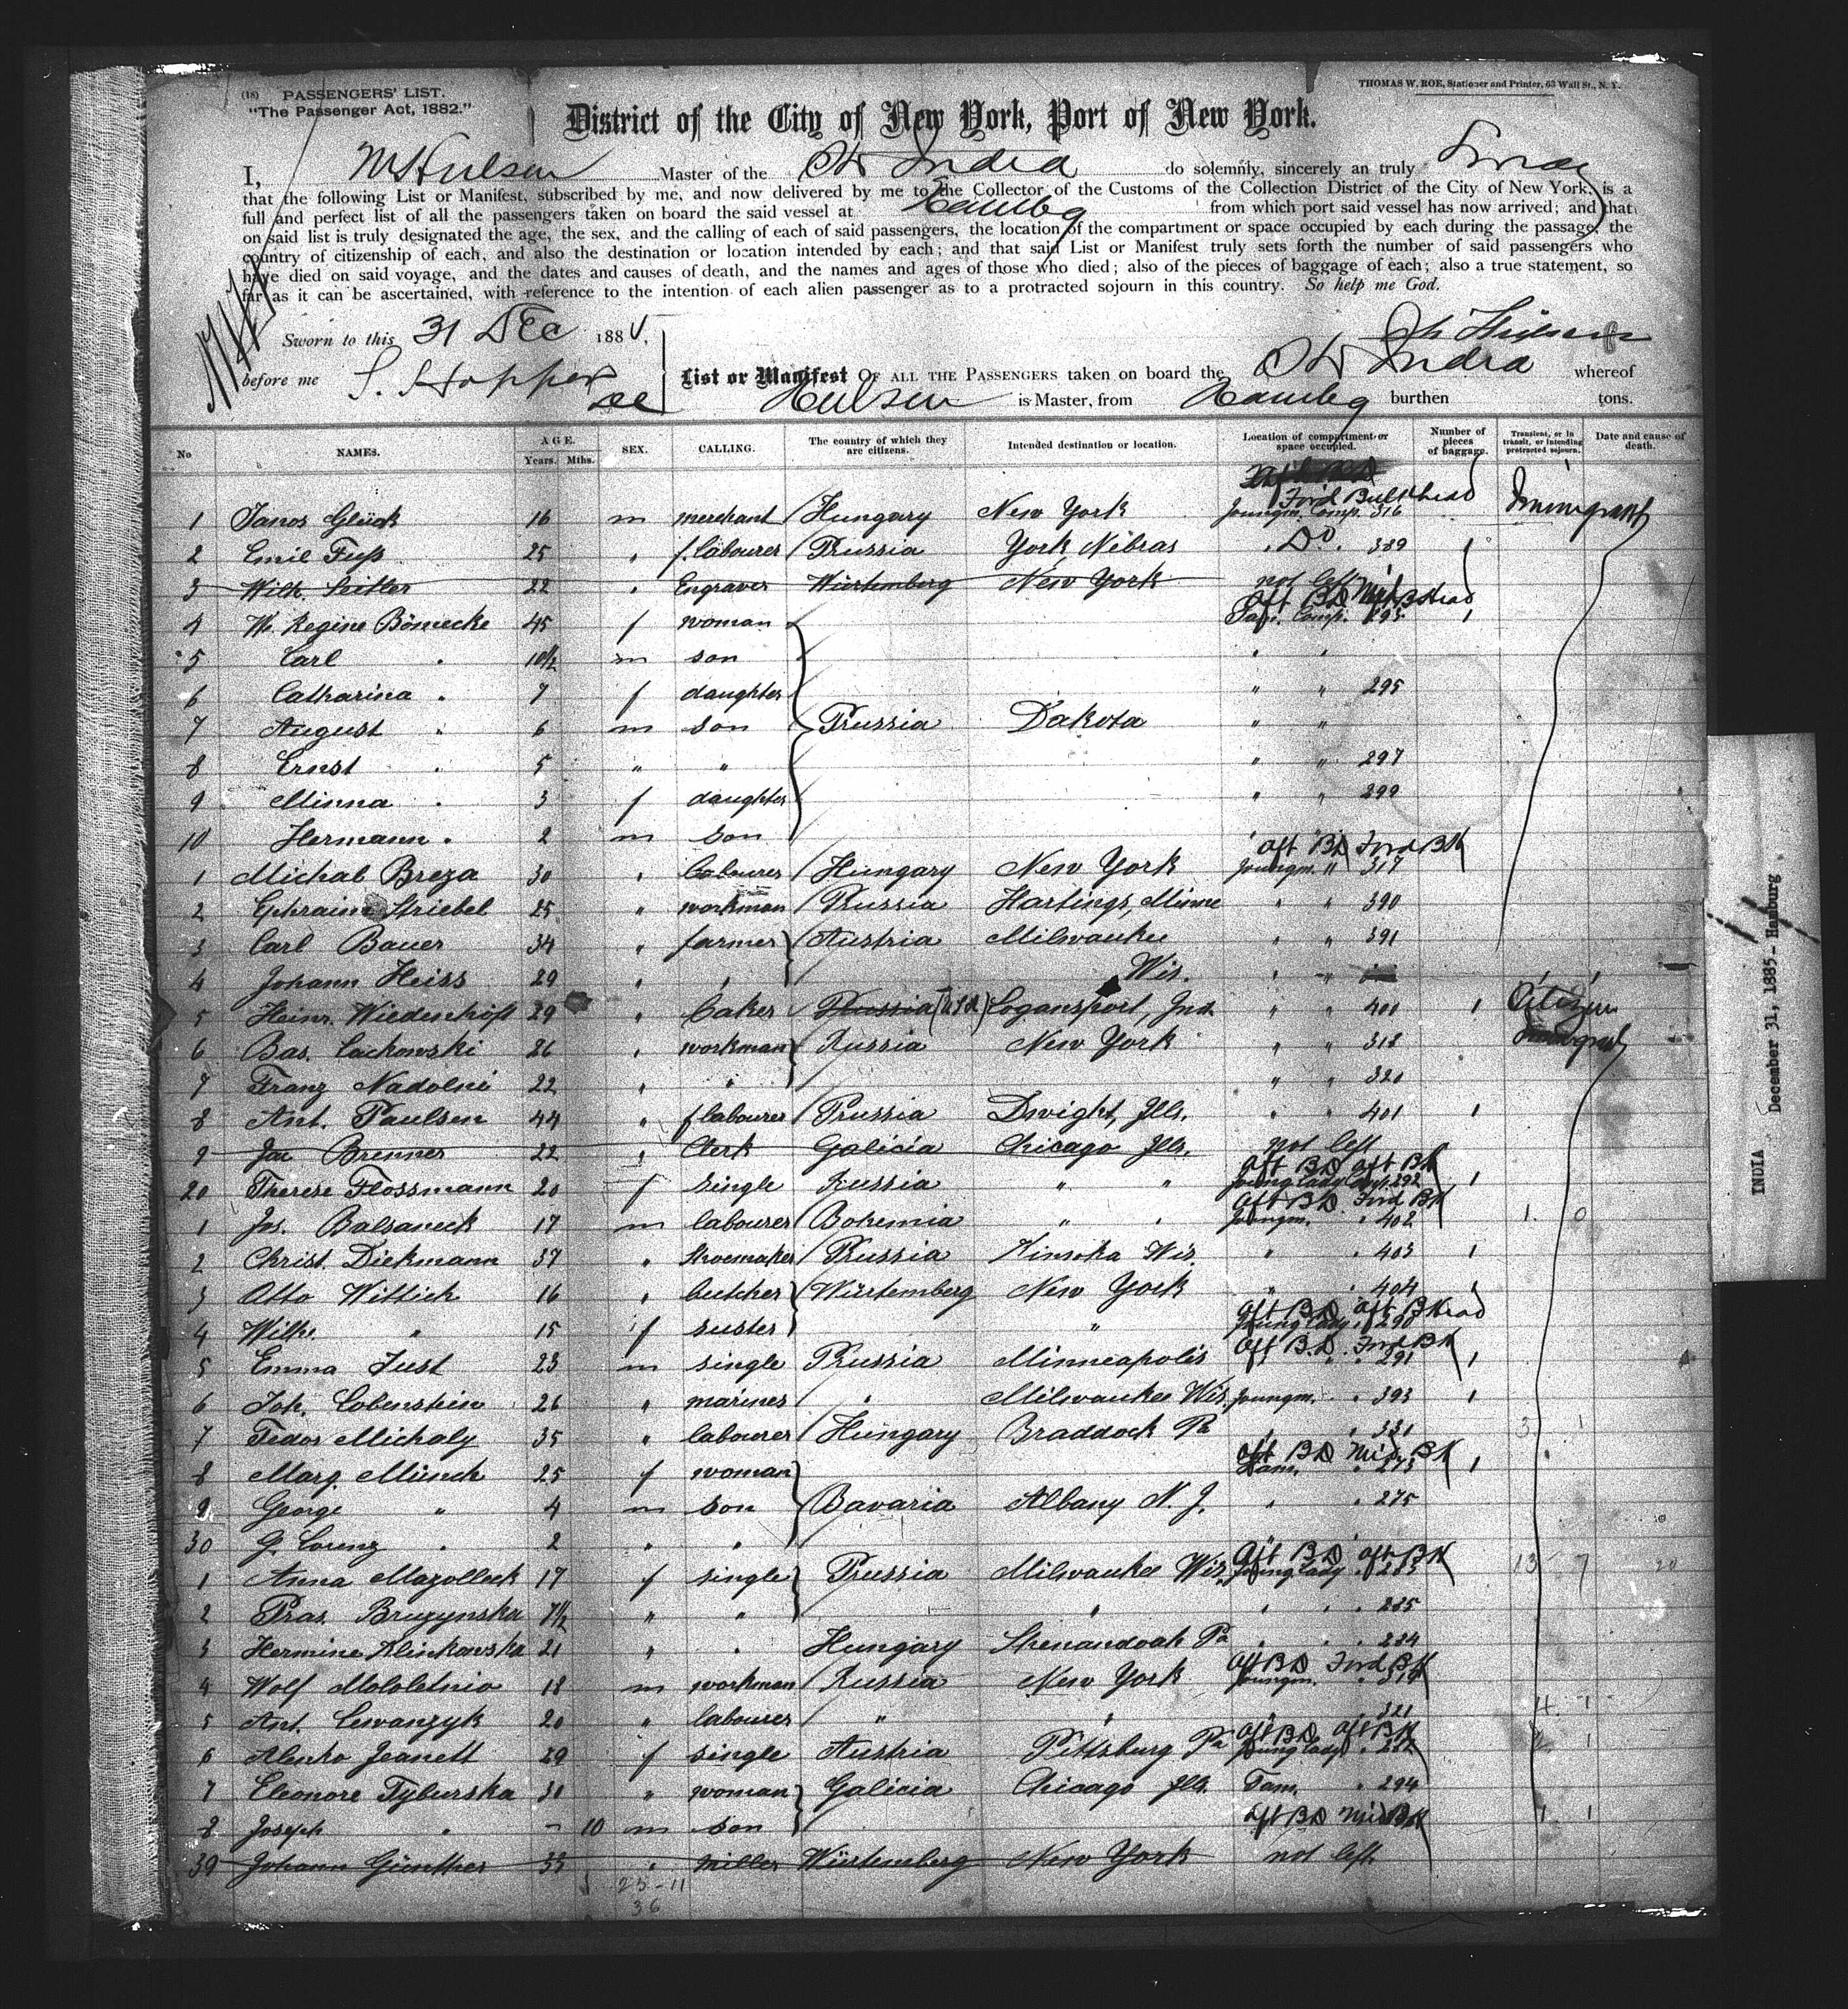 (18) PASSENGERS' LIST.
"The Passenger Act, 1882."
THOMAS W. ROE, Stationer and Printer, 63 Wall St., N. Y.
District of the City of New York, Port of New York.
I, Hülsen Master of the India do solemnly, sincerely an truly Swear
that the following List or Manifest, subscribed by me, and now delivered by me to the Collector of the Customs of the Collection District of the City of New York, is a
full and perfect list of all the passengers taken on board the said vessel at Hambg from which port said vessel has now arrived; and that
on said list is truly designated the age, the sex, and the calling of each of said passengers, the location of the compartment or space occupied by each during the passage, the
country of citizenship of each, and also the destination or location intended by each; and that said List or Manifest truly sets forth the number of said passengers who
have died on said voyage, and the dates and causes of death, and the names and ages of those who died; also of the pieces of baggage of each; also a true statement, so
far as it can be ascertained, with reference to the intention of each alien passenger as to a protracted sojourn in this country. So help me God.
Sworn to this 31 Dec 1885,
before me S. Hopper
List or Manifest OF ALL THE PASSENGERS taken on board the India whereof
Hülsen is Master, from Hambg burthen tons.
No NAMES. AGE. Years. Mths. SEX. CALLING. The country of which they are citizens. Intended destination or location. Location of compartment or space occupied. Number of pieces of baggage. Transient, or in transit, or intending protracted sojourn. Date and cause of death.
Ford Bulkhead
1 Janos Glück 16 m merchant Hungary New York Youngm. Comp. 316 Immigrant
2 Emil Fuss 25 " f. labourer Prussia York, Nebras " Do. 389 1
3 Wilh. Seitler 22 " Engraver Würtemberg New York not left
4 W. Regine Bönecke 45 f woman Fam. Comp. 295 1
5 Carl " 10 1/2 m son " "
6 Catharina " 7 f daughter " " 295
7 August " 6 m son Prussia Dakota " "
8 Ernst " 5 " " " " 297
9 Minna " 3 f daughter " " 299
10 Hermann " 2 m son " "
Aft BD Ford BK
1 Michal Breza 30 " labourer Hungary New York Youngm. " 317
2 Ephraim Striebel 25 " workman Prussia Hartings, Minne " " 390
3 Carl Bauer 34 " farmer Austria Milwaukee " " 391
4 Johann Heiss 29 " " Wis. " "
5 Heinr. Wiedenhöft 29 " baker Prussia (USA) Logansport, Ind. " " 400 1 Citizen
6 Bas. Lackowski 26 " workman Russia New York " " 318 Immigrant
7 Franz Nadolni 22 " " " " 320
8 Ant. Paulsen 44 " f labourer Prussia Dwight, Ills. " " 401 1
9 Jac Brenner 22 " Clerk Galicia Chicago Ills. not left
Aft BD aft BK
20 Therese Flossmann 20 f single Russia " " Young lady Comp. 292 1
Aft BD Ford BK
1 Jos. Balsaneck 17 m labourer Bohemia " " Youngm. " 402 1. 0
2 Christ. Diekmann 37 " Shoemaker Prussia Wis. " " 403 1
3 Otto Wittich 16 " butcher Würtemberg New York " " 404 1
Aft BD aft BKead
4 Wilhe " 15 f suster " Young lady " 290
Aft B.D. Ford BK
5 Emma Just 23 m single Prussia Minneapolis " " 291 1
6 Joh. Lobenstein 26 " mariner " Milwaukee Wis. Youngm. " 393 1
7 Fedor Michaly 35 " labourer Hungary Braddock Pa " " 331 3 1
Aft BD Mid BK
8 Marg. Münch 25 f woman Fam. " 275 1
9 George " 4 m son Bavaria Albany N. J. " " 275
30 G. Lorenz " 2 " "
Aft BD aft BK
1 Anna Mazolleck 17 f single Prussia Milwaukee Wis. Young lady " 285 13 7 20
2 Pras. Bruzynska 7 1/2 " " " " " " 285
3 Hermine Klinkowska 21 " " Hungary Shenandoah Pa " " " 284
Aft BD Ford BK
4 Wolf Mololetnio 18 m workman Russia New York Youngm. " 319
5 Ant. Lewanzyk 20 " labourer " " " 321 4. 1
Aft BD aft BK
6 Alenko Jeanett 29 f single Austria Pittsburg Pa Young lady " 282 1
7 Eleonore Tyburska 30 " woman Galicia Chicago Ills. Fam. " 294
8 Joseph " - 10 m son aft BD Mid BK 1. 1
39 Johann Günther 33 " miller Würtemberg New York not left.
25-11
36
INDIA December 31, 1885 - Hamburg